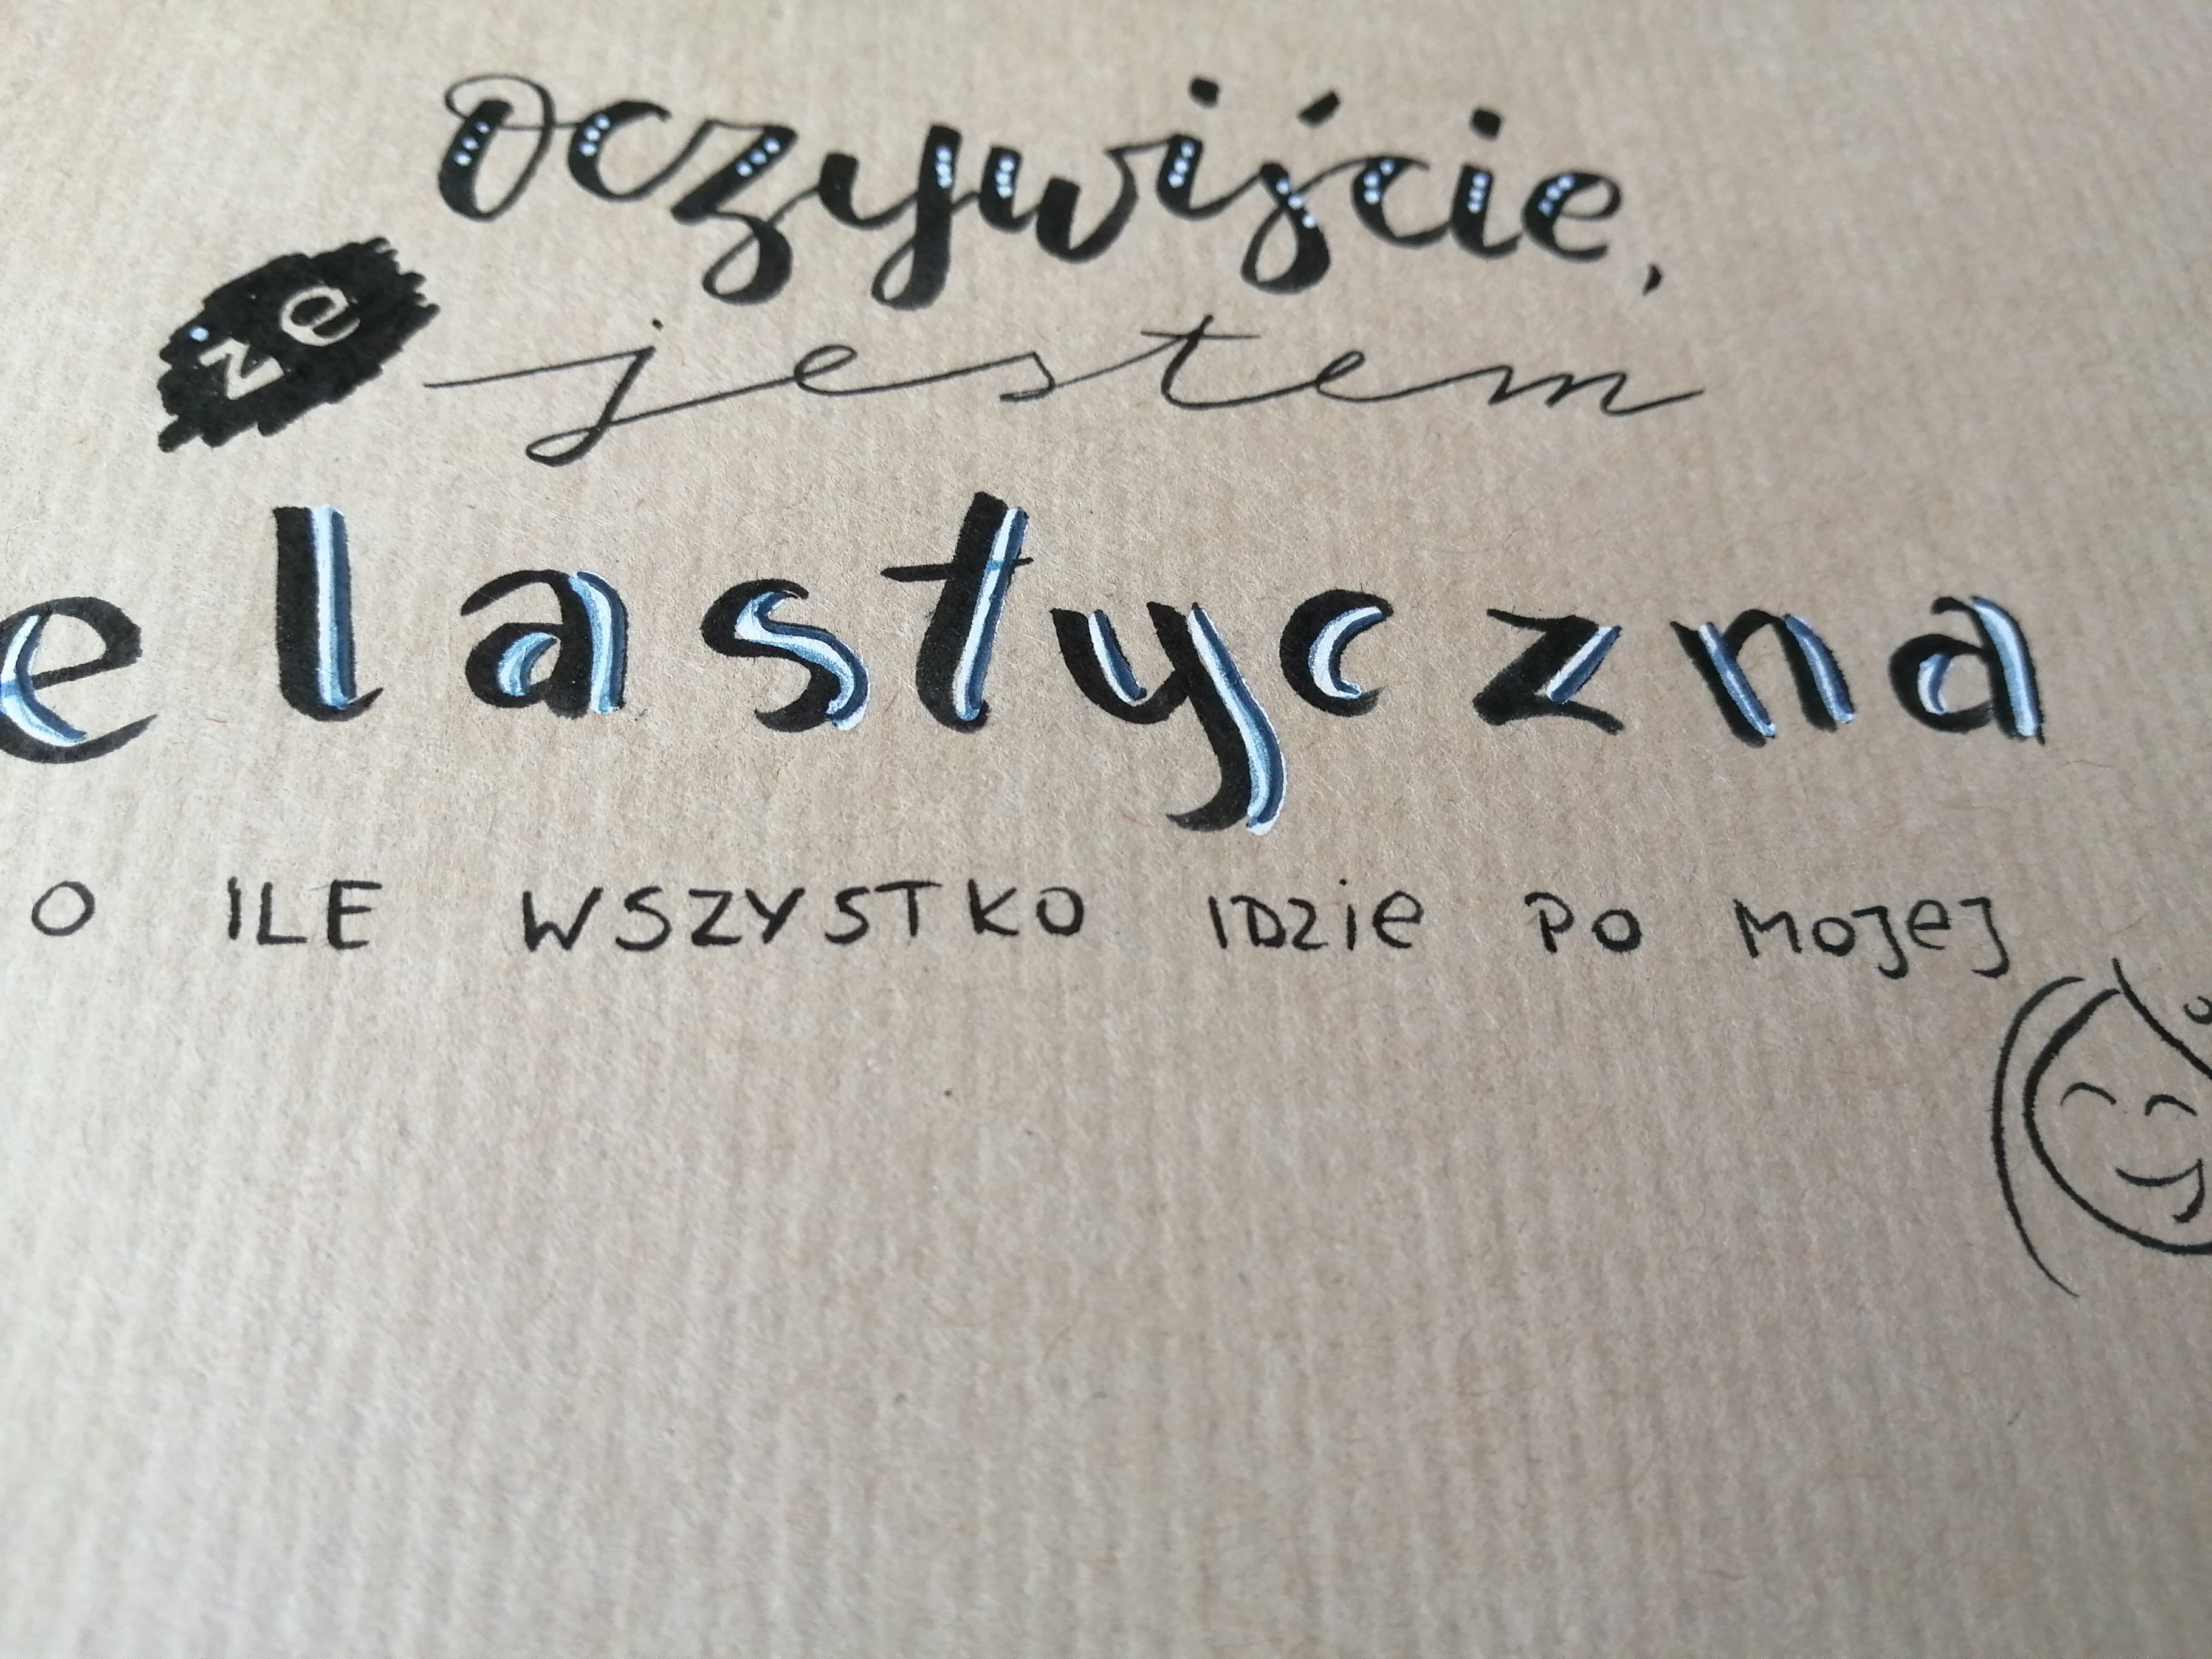 oczywiście,
że jestem
elastyczna
O ILE WSZYSTKO IDZIE PO MOJEJ